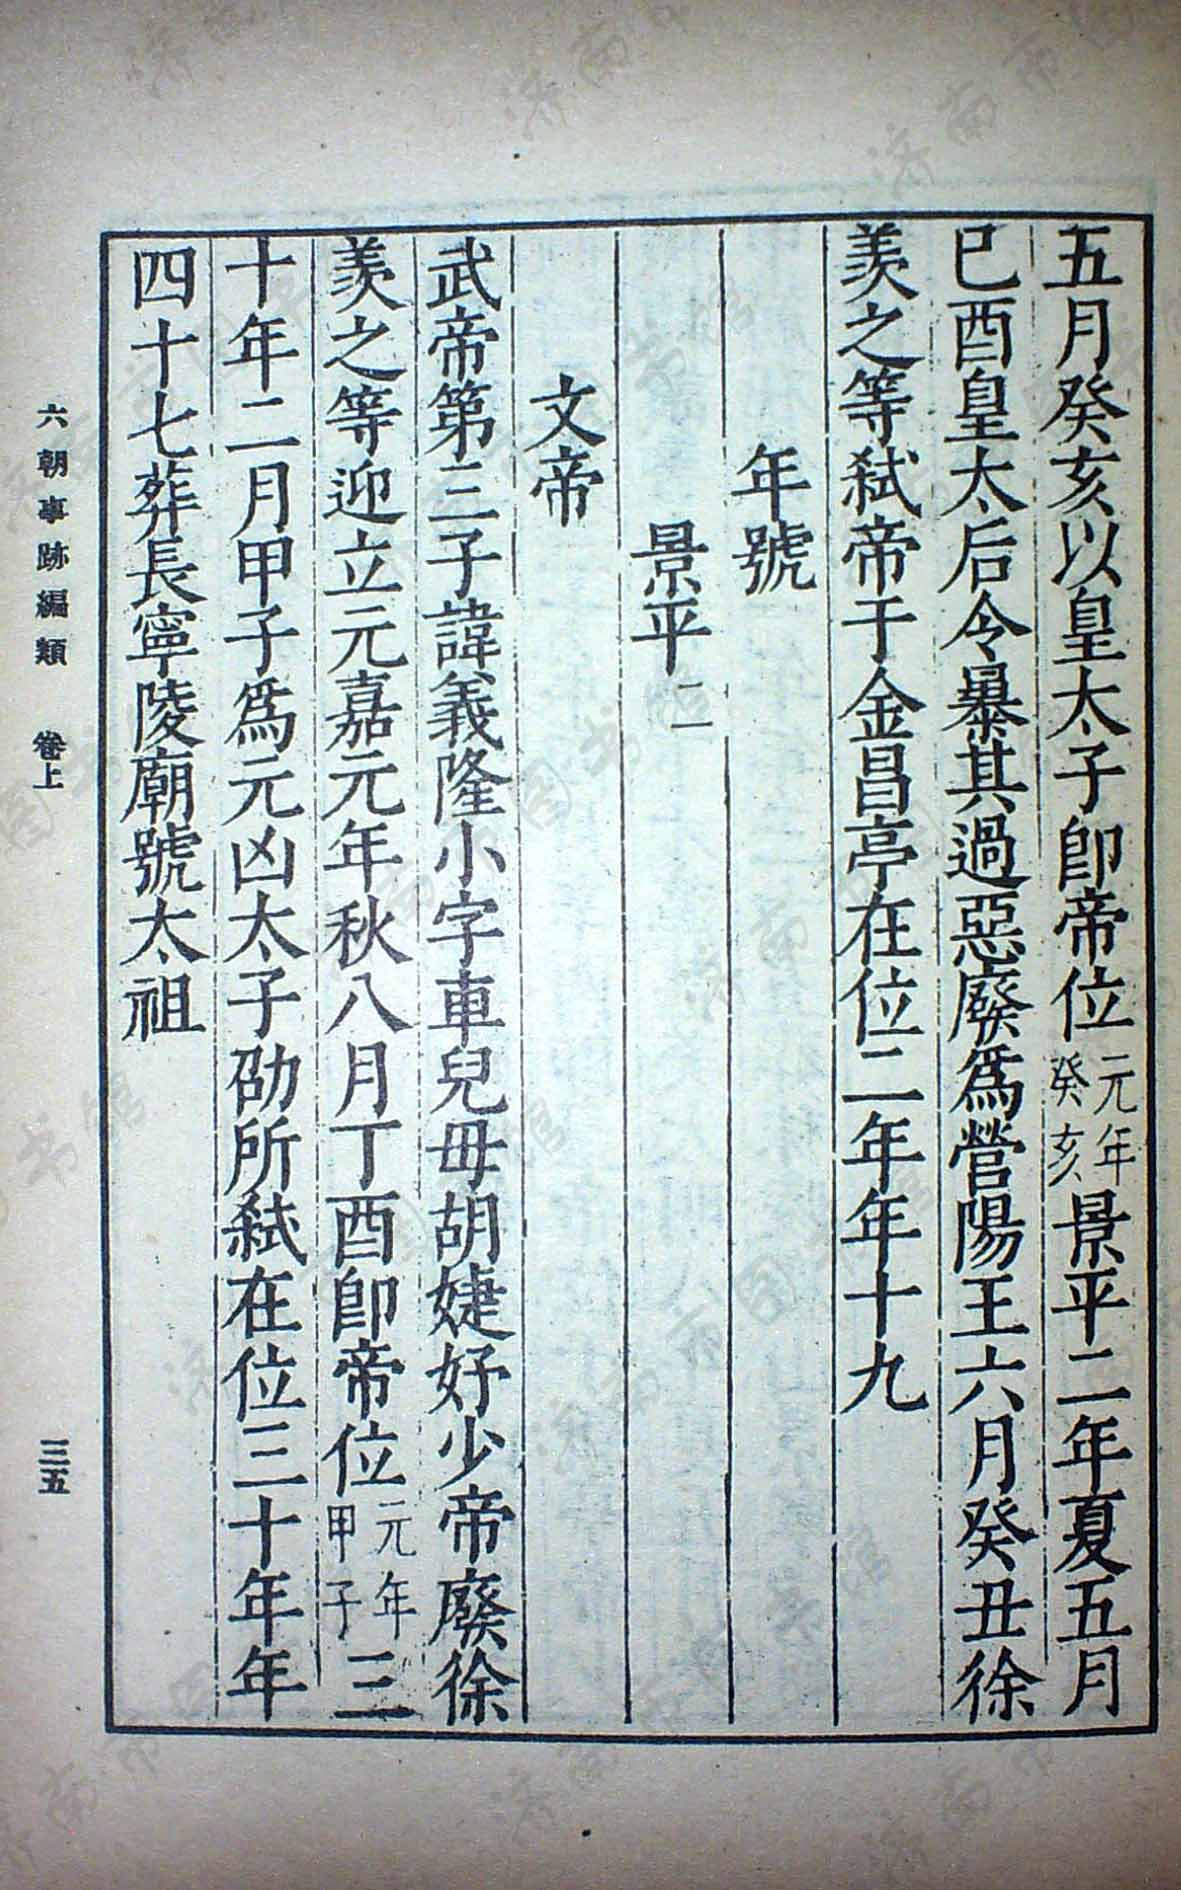 五月癸亥以皇太子卽帝位元年癸亥景平二年夏五月
已酉皇太后令暴其過惡廢爲營陽王六月癸丑徐
羨之等弑帝于金昌亭在位二年年十九
年號
景平二
文帝
武帝第三子諱義隆小字車兒毋胡婕妤少帝廢徐
羨之等迎立元嘉元年秋八月丁酉卽帝位元年甲子三
十年二月甲子爲元凶太子劭所弑在位三十年年
四十七葬長寧陵廟號太祖
六朝事跡編類 卷上
三五
济南市图书馆